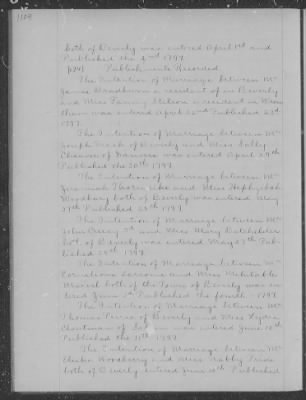 both of Beverly was entered April 1st and
Published the 2nd 1797.
Publishments Recorded
The Intention of Marriage between Mr
James Woodburn a resident of in Beverly
and Miss Fanny Stetson a resident in
was entered April 22nd Published 23d
1797.
The Intention of Marriage between Mr
Joseph of Beverly and Miss Sally
of Danvers was entered April 29th
Published the 30th 1797.
The Intention of Marriage between Mr
Jeremiah Thorndike and Miss Hephzibah
Woodbury both of Beverly was entered May
27th Published 28th 1797.
The Intention of Marriage between Mr
John 3d and Miss Mary Batchelder
both of Beverly was entered May 27th Pub-
lished 28th 1797.
The Intention of Marriage between Mr
Cornelious and Miss Mehitable
both of the Town of Beverly was en-
tered June Published the fourth 1797.
The Intention of Marriage between Mr
Thomas of Beverly and Miss Lydia
of was entered June 10th
Published the 11th 1797.
The Intention of Marriage between Mr
Elisha Woodberry and Miss Nabby
both of Beverly entered June 10th Published